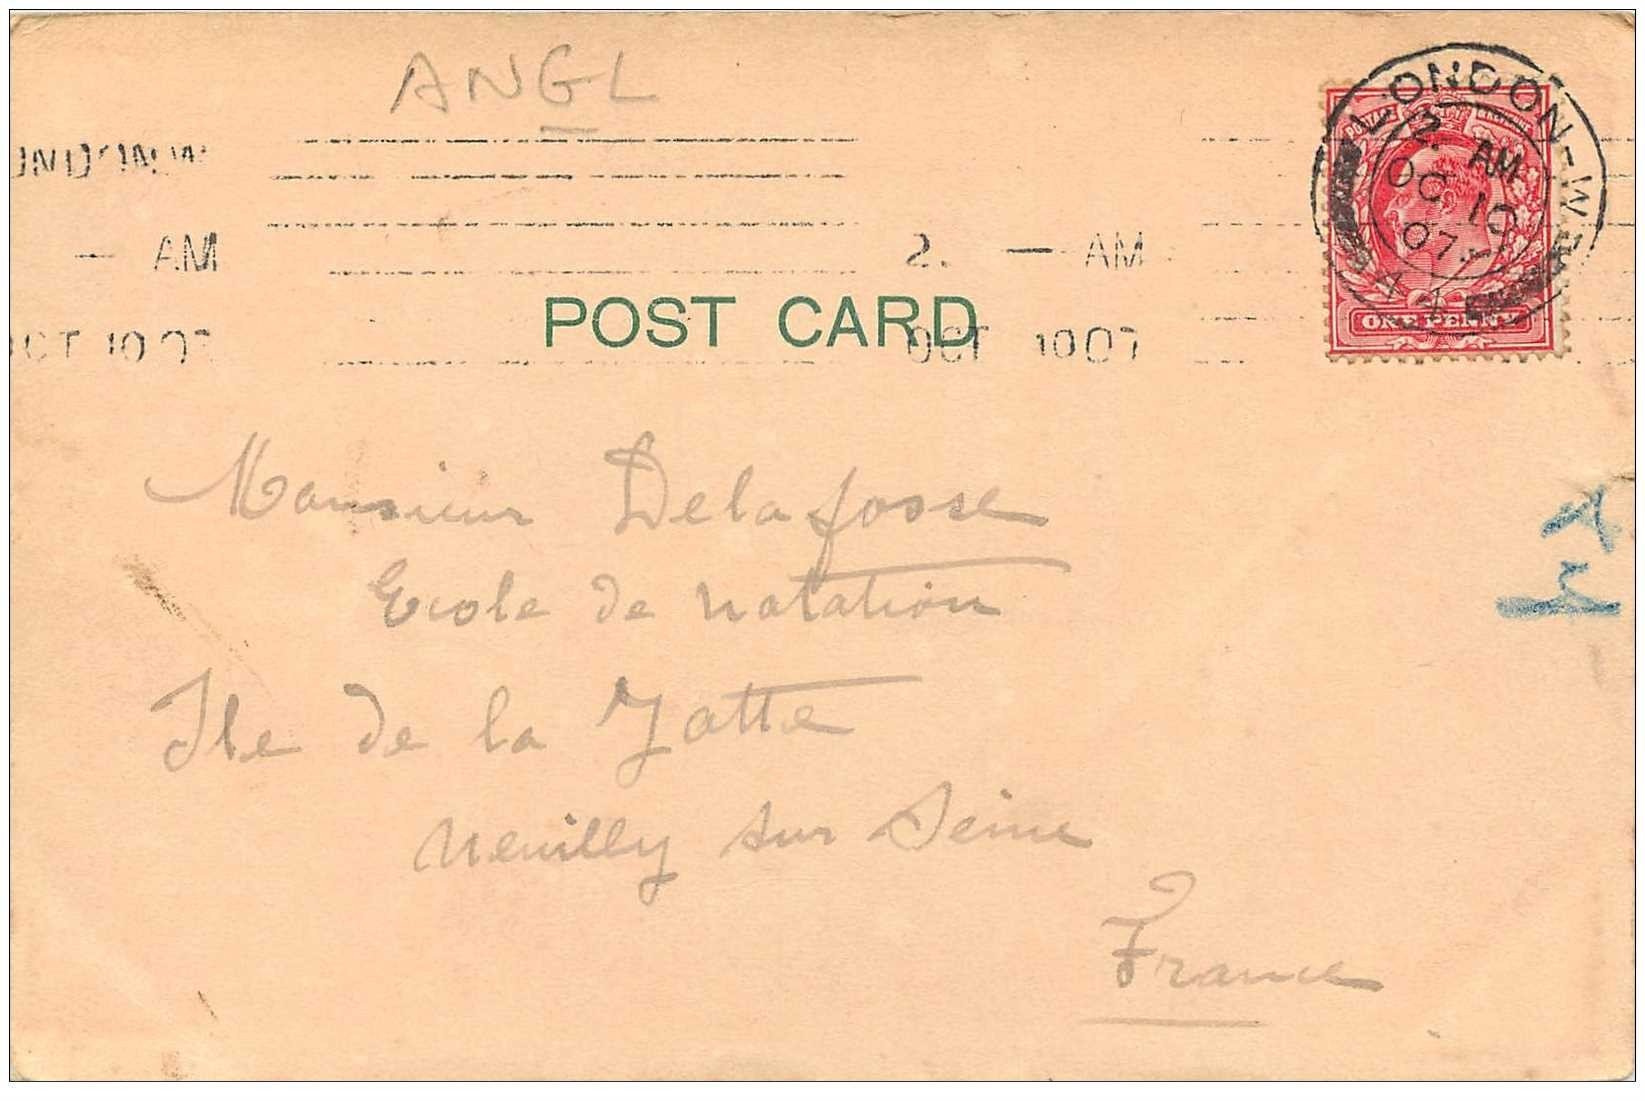 ANGL
LONDON-W
2. AM
OC 10
07
AM
2. — AM
POST CARD
OCT 10 07
OCT 10 07
ONE PENNY
Monsieur Delafosse
Ecole de natation
Ile de la Jatte
Neuilly sur Seine
France